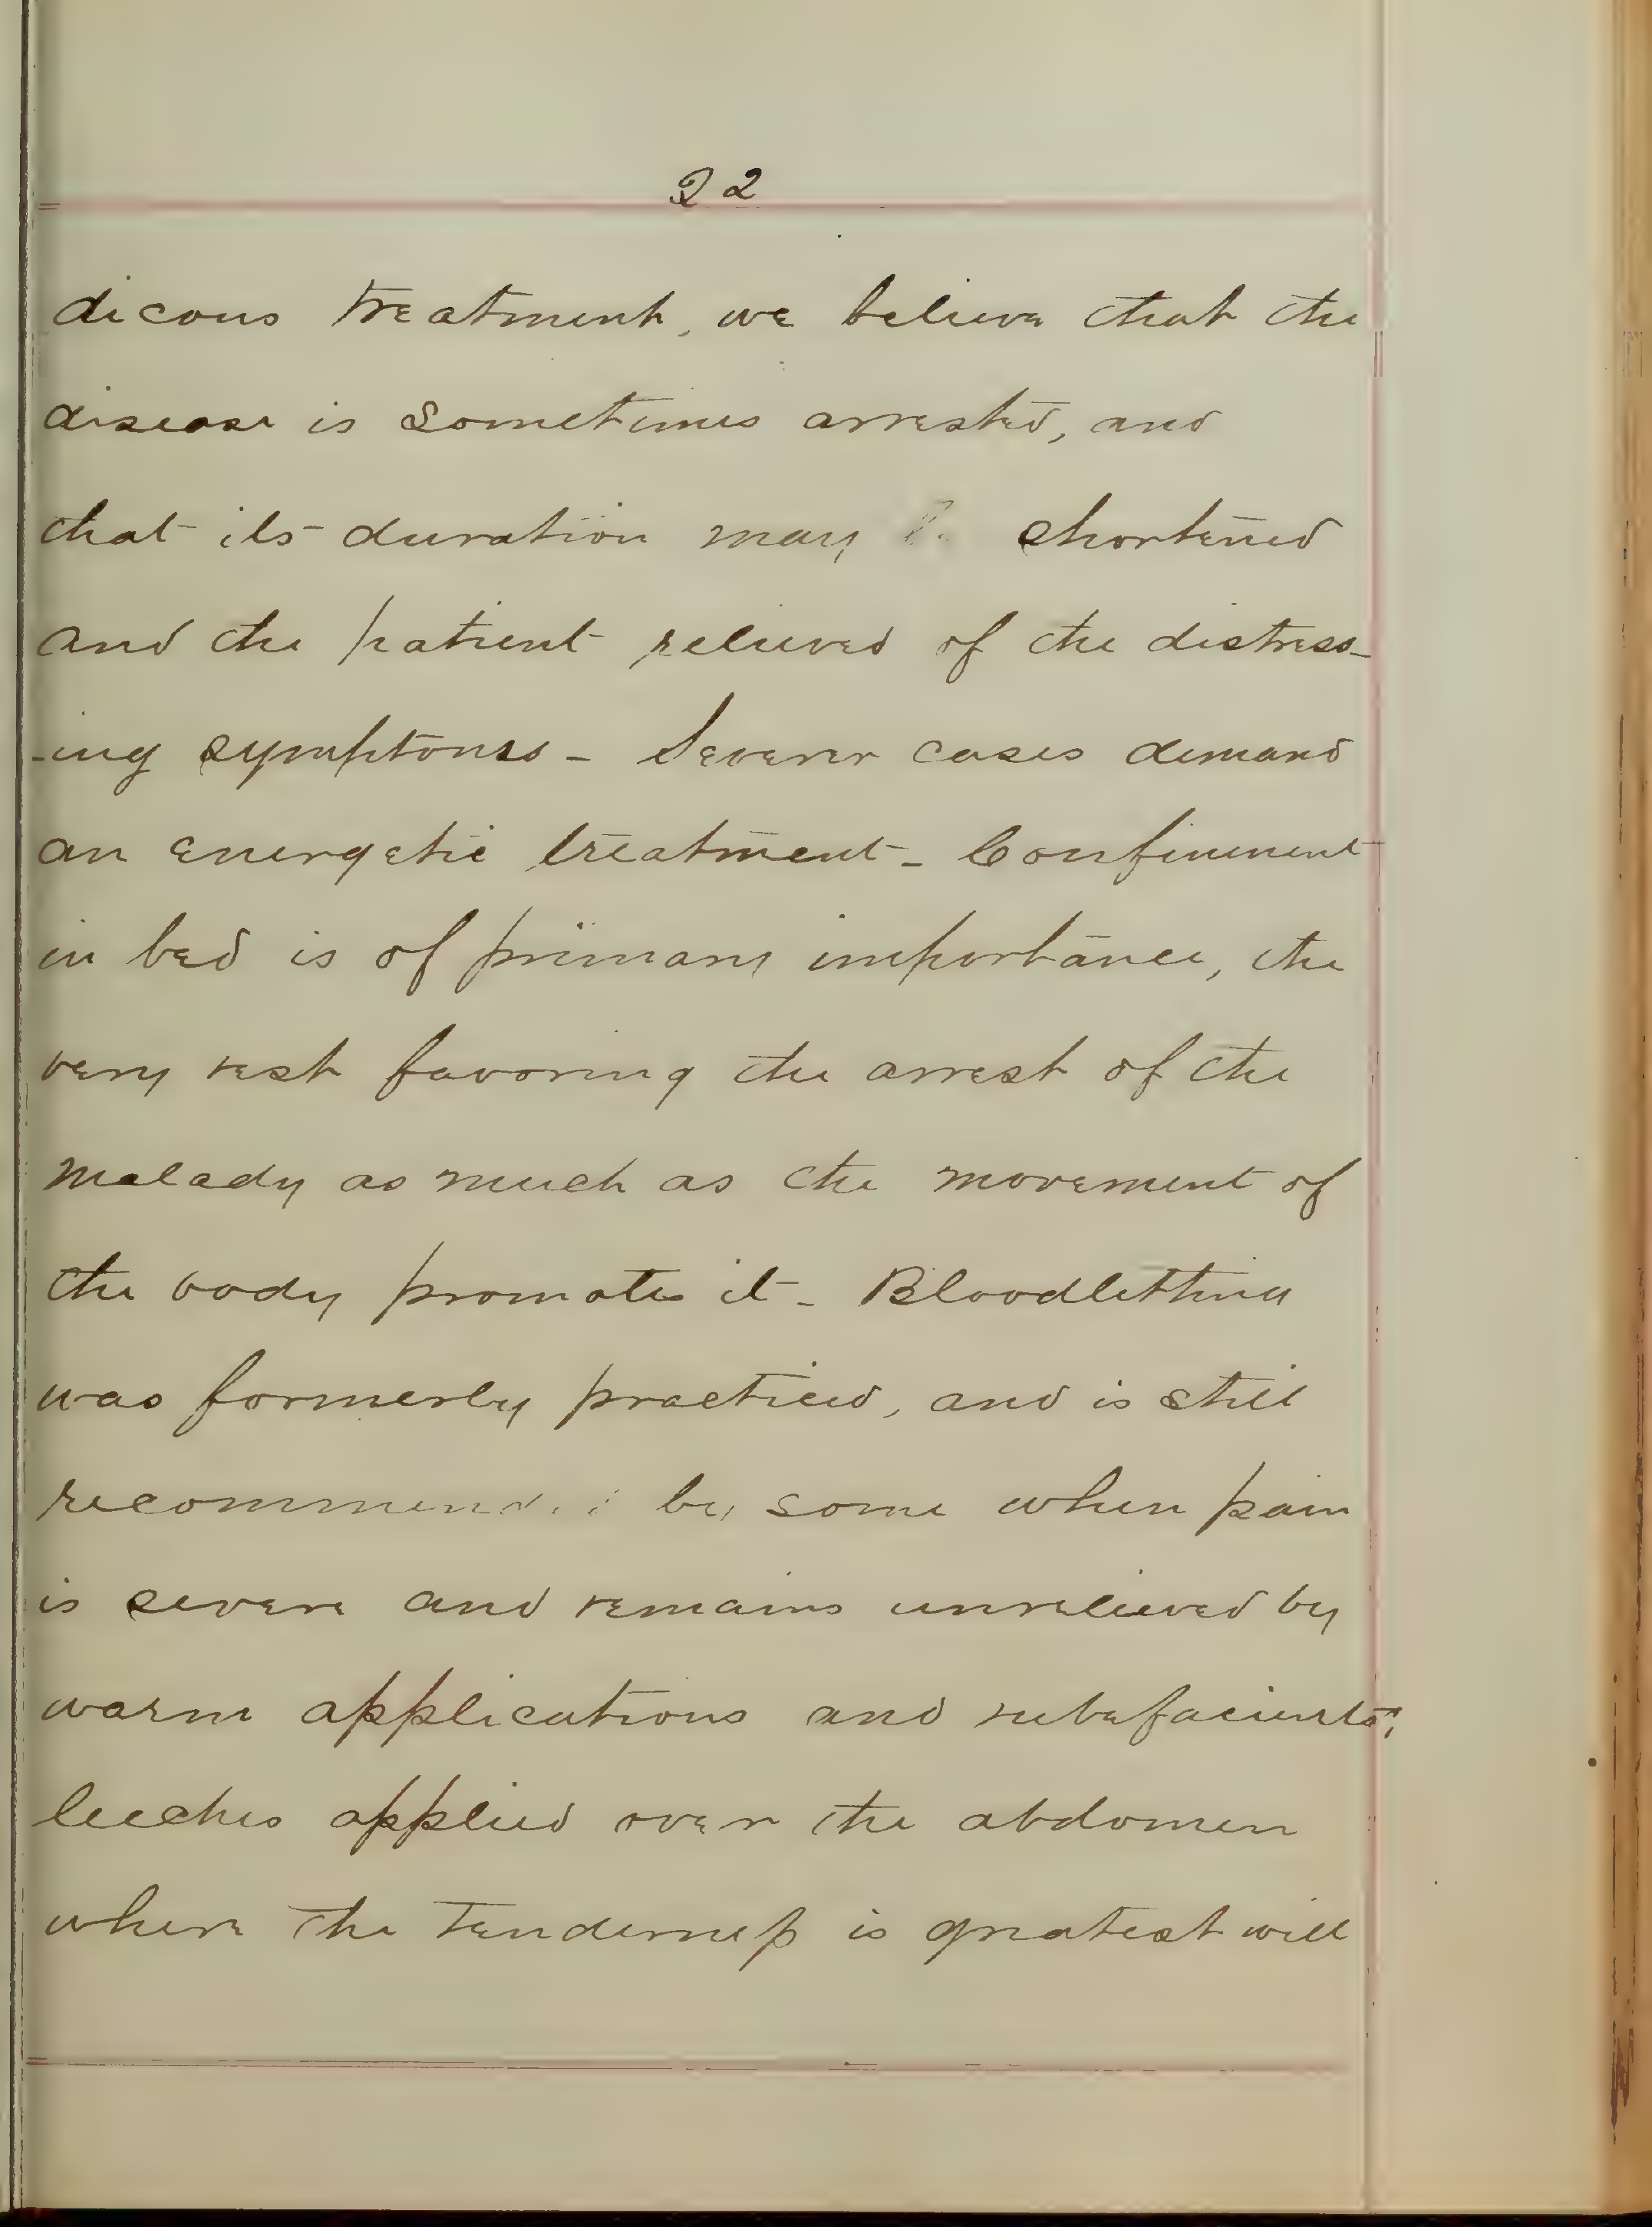 22
dicous treatment, we believe that the
disease is sometimes arrested, and
that its duration may shortened
and the patient relieved of the distress-
-ing symptoms - Severer cases demand
an energetic treatment - Confinement
in bed is of primary importance, the
very rest favoring the arrest of the
malady as much as the movement of
the body promotes it - Bloodletting
was formerly practiced, and is still
recommended by some when pain
is severe and remains unrelieved by
warm applications and rubefacients;
leeches applied over the abdomen
where the tenderness is greatest will